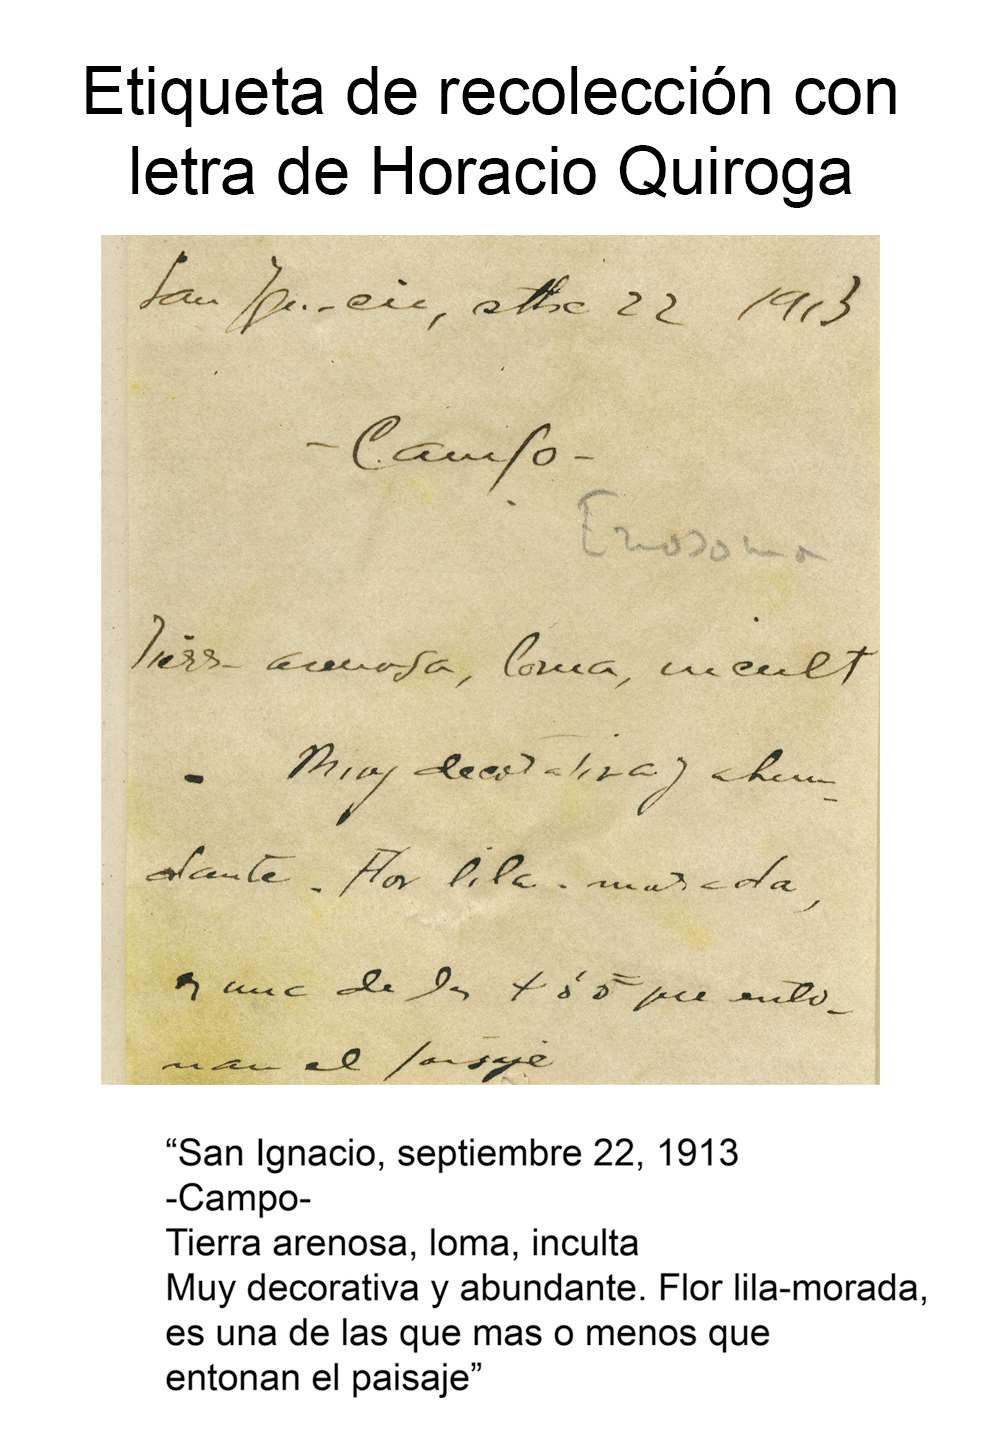 Etiqueta de recolección con
letra de Horacio Quiroga
San Ignacio, stbre 22 1913
- Campo -
Tierra arenosa, loma, incult
- Muy decorativa y abun-
dante. Flor lila-morada,
es una de las + ó - que ento-
nan el paisaje
“San Ignacio, septiembre 22, 1913
-Campo-
Tierra arenosa, loma, inculta
Muy decorativa y abundante. Flor lila-morada,
es una de las que mas o menos que
entonan el paisaje”